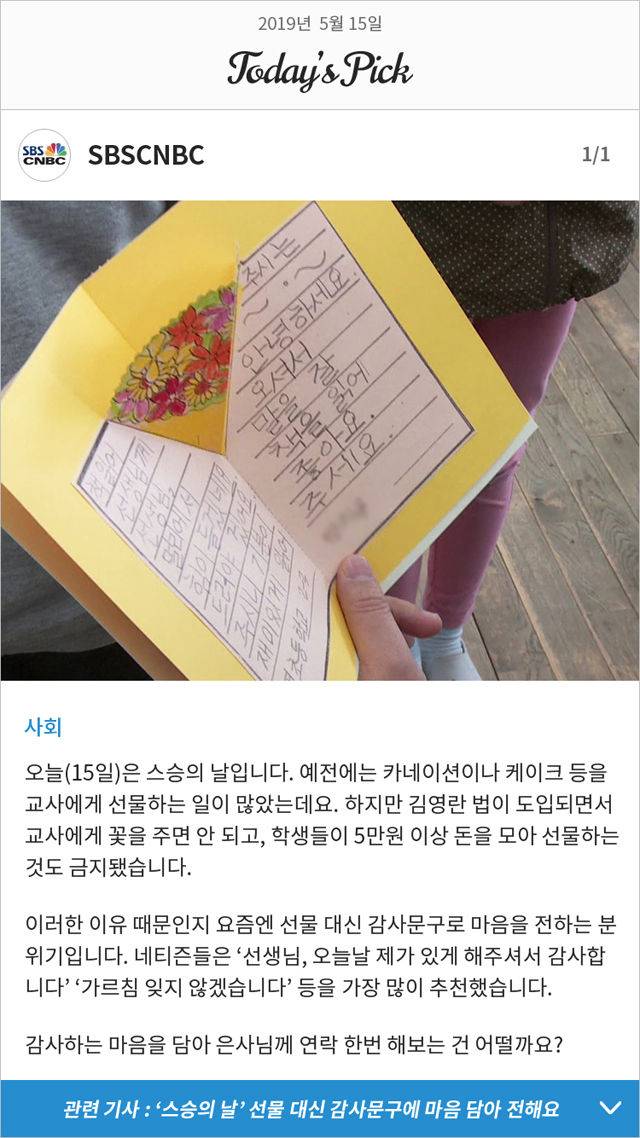 2019년 5월 15일
Today's Pick
SBS
CNBC
SBSCNBC
1/1
주시는
안녕하세요.
오셔서
잘
읽에
주세요.
재미있게
사회
오늘(15일)은 스승의 날입니다. 예전에는 카네이션이나 케이크 등을
교사에게 선물하는 일이 많았는데요. 하지만 김영란 법이 도입되면서
교사에게 꽃을 주면 안 되고, 학생들이 5만원 이상 돈을 모아 선물하는
것도 금지됐습니다.
이러한 이유 때문인지 요즘엔 선물 대신 감사문구로 마음을 전하는 분
위기입니다. 네티즌들은 ‘선생님, 오늘날 제가 있게 해주셔서 감사합
니다’ ‘가르침 잊지 않겠습니다’ 등을 가장 많이 추천했습니다.
감사하는 마음을 담아 은사님께 연락 한번 해보는 건 어떨까요?
관련 기사 : ‘스승의 날’ 선물 대신 감사문구에 마음 담아 전해요